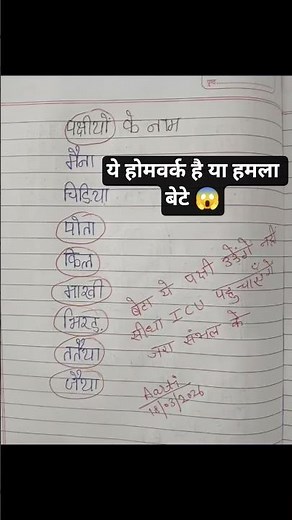 पक्षीयों के नाम
मैना
चिड़िया
पोता
किल
माखी
भिरड़
ततैया
जैया
ये होमवर्क है या हमला
बेटे 😱
बेटा ये पक्षी उड़ेंगे नहीं
सीधा ICU पहुचाएँगे
जरा संभल के
Aarti